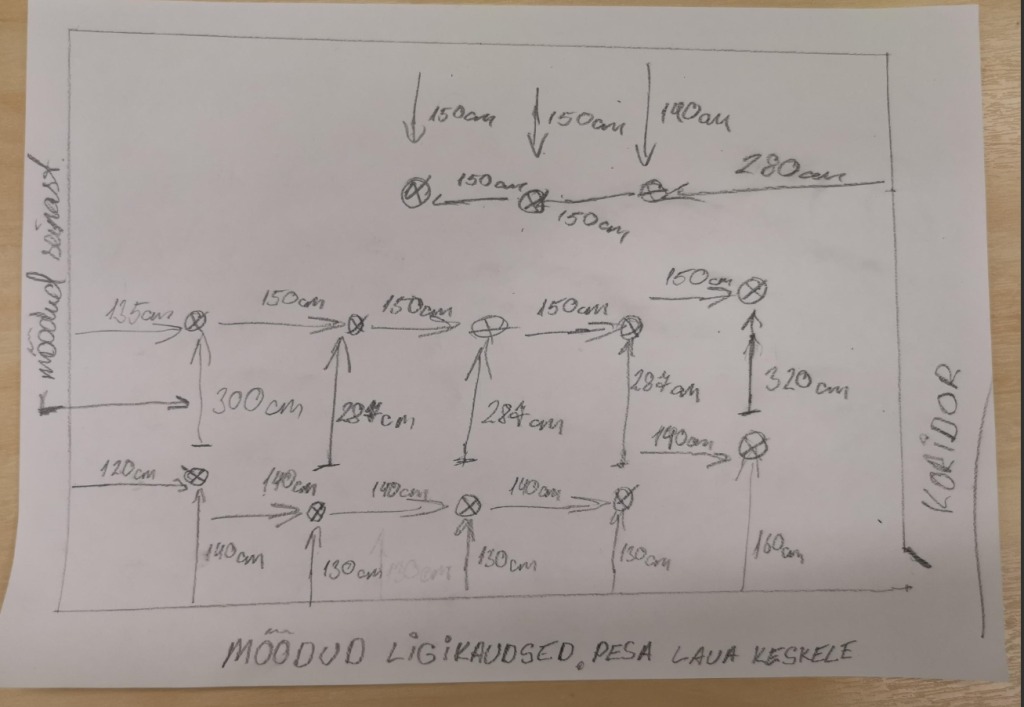 150cm
150cm
190cm
280cm
150cm
150cm
mõõdud seinast
135cm
150cm
150cm
150cm
150cm
300cm
287cm
287cm
287cm
320cm
120cm
140cm
140cm
140cm
190cm
140cm
130cm
130cm
130cm
130cm
160cm
KORIDOR
MÕÕDUD LIGIKAUDSED. PESA LAUA KESKELE